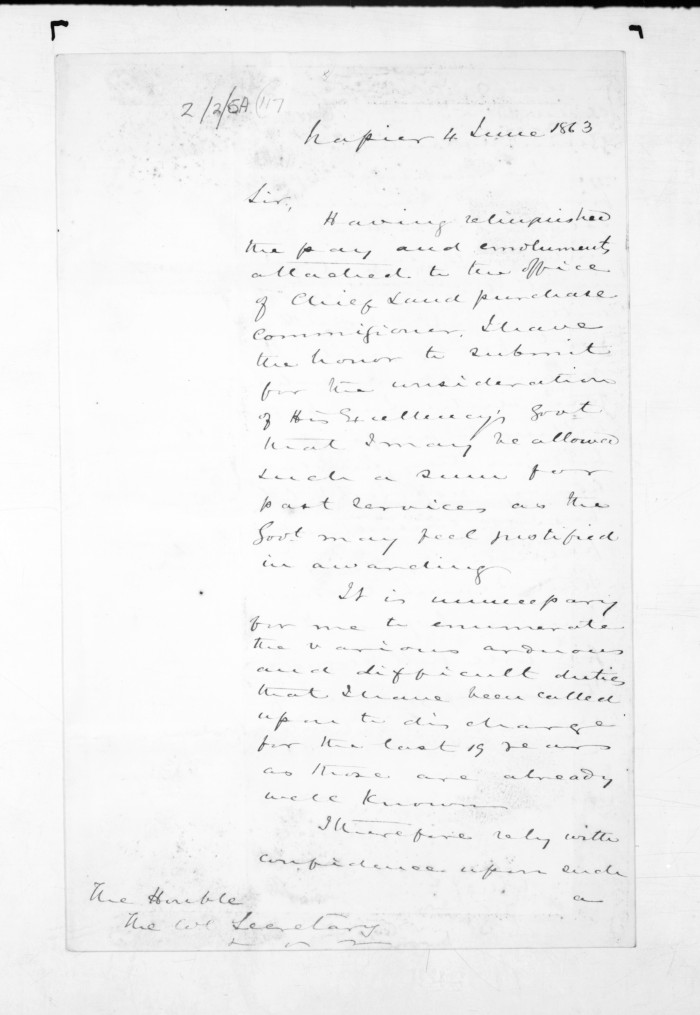 2/2/5A (117
Napier 4 June 1863
Sir,
Having relinquished
the pay and emoluments
attached to the office
of Chief Land purchase
Commissioner, I have
the honor to submit
for the consideration
of His Excellency's Govt
that I may be allowed
such a sum for
past services as the
Govt may feel justified
in awarding
It is unnecessary
for me to enumerate
the various arduous
and difficult duties
that I have been called
upon to discharge
for the last 19 years
as those are already
well known
I therefore rely with
confidence upon such
a
The Honble
The Col Secretary